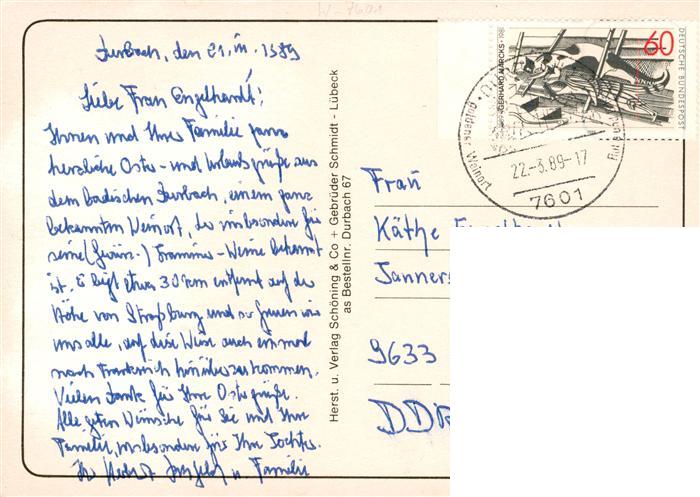 W-7601
Durbach, den 21. III. 1989
Liebe Frau Engelhardt!
Ihnen und Ihrer Familie ganz
herzliche Oster- und Urlaubsgrüße aus
dem badischen Durbach, einem ganz
bekannten Weinort, der insbesondere für
seine (Gewürz-) Traminer-Weine bekannt
ist. Er liegt etwa 30 km entfernt auf der
Höhe von Straßburg und so freuen wir
uns alle, auf diese Weise auch einmal
nach Frankreich hinüberzukommen.
Vielen Dank für Ihre Ostergrüße.
Alle guten Wünsche für Sie und Ihre
Familie, insbesondere für Ihre Tochter.
Ihr u. Familie
Herst. u. Verlag Schöning & Co + Gebrüder Schmidt - Lübeck
as Bestellnr. Durbach 67
60
DEUTSCHE BUNDESPOST
GERHARD MARCKS
goldener Weinort
22.-3.89-17
7601
Frau
Käthe
Janners
9633
DDR